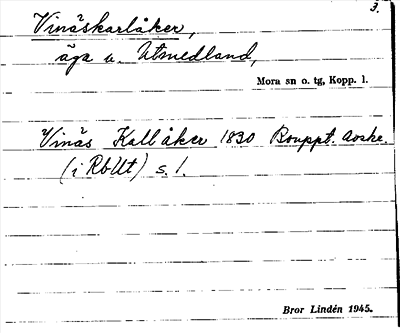 3.
Vinäskarlåker,
äga u. Utmedland,
Mora sn o. tg, Kopp. l.
Vinäs Kallåker 1830 Bouppt. Avskr.
(i RbUt) s. 1.
Bror Lindén 1945.